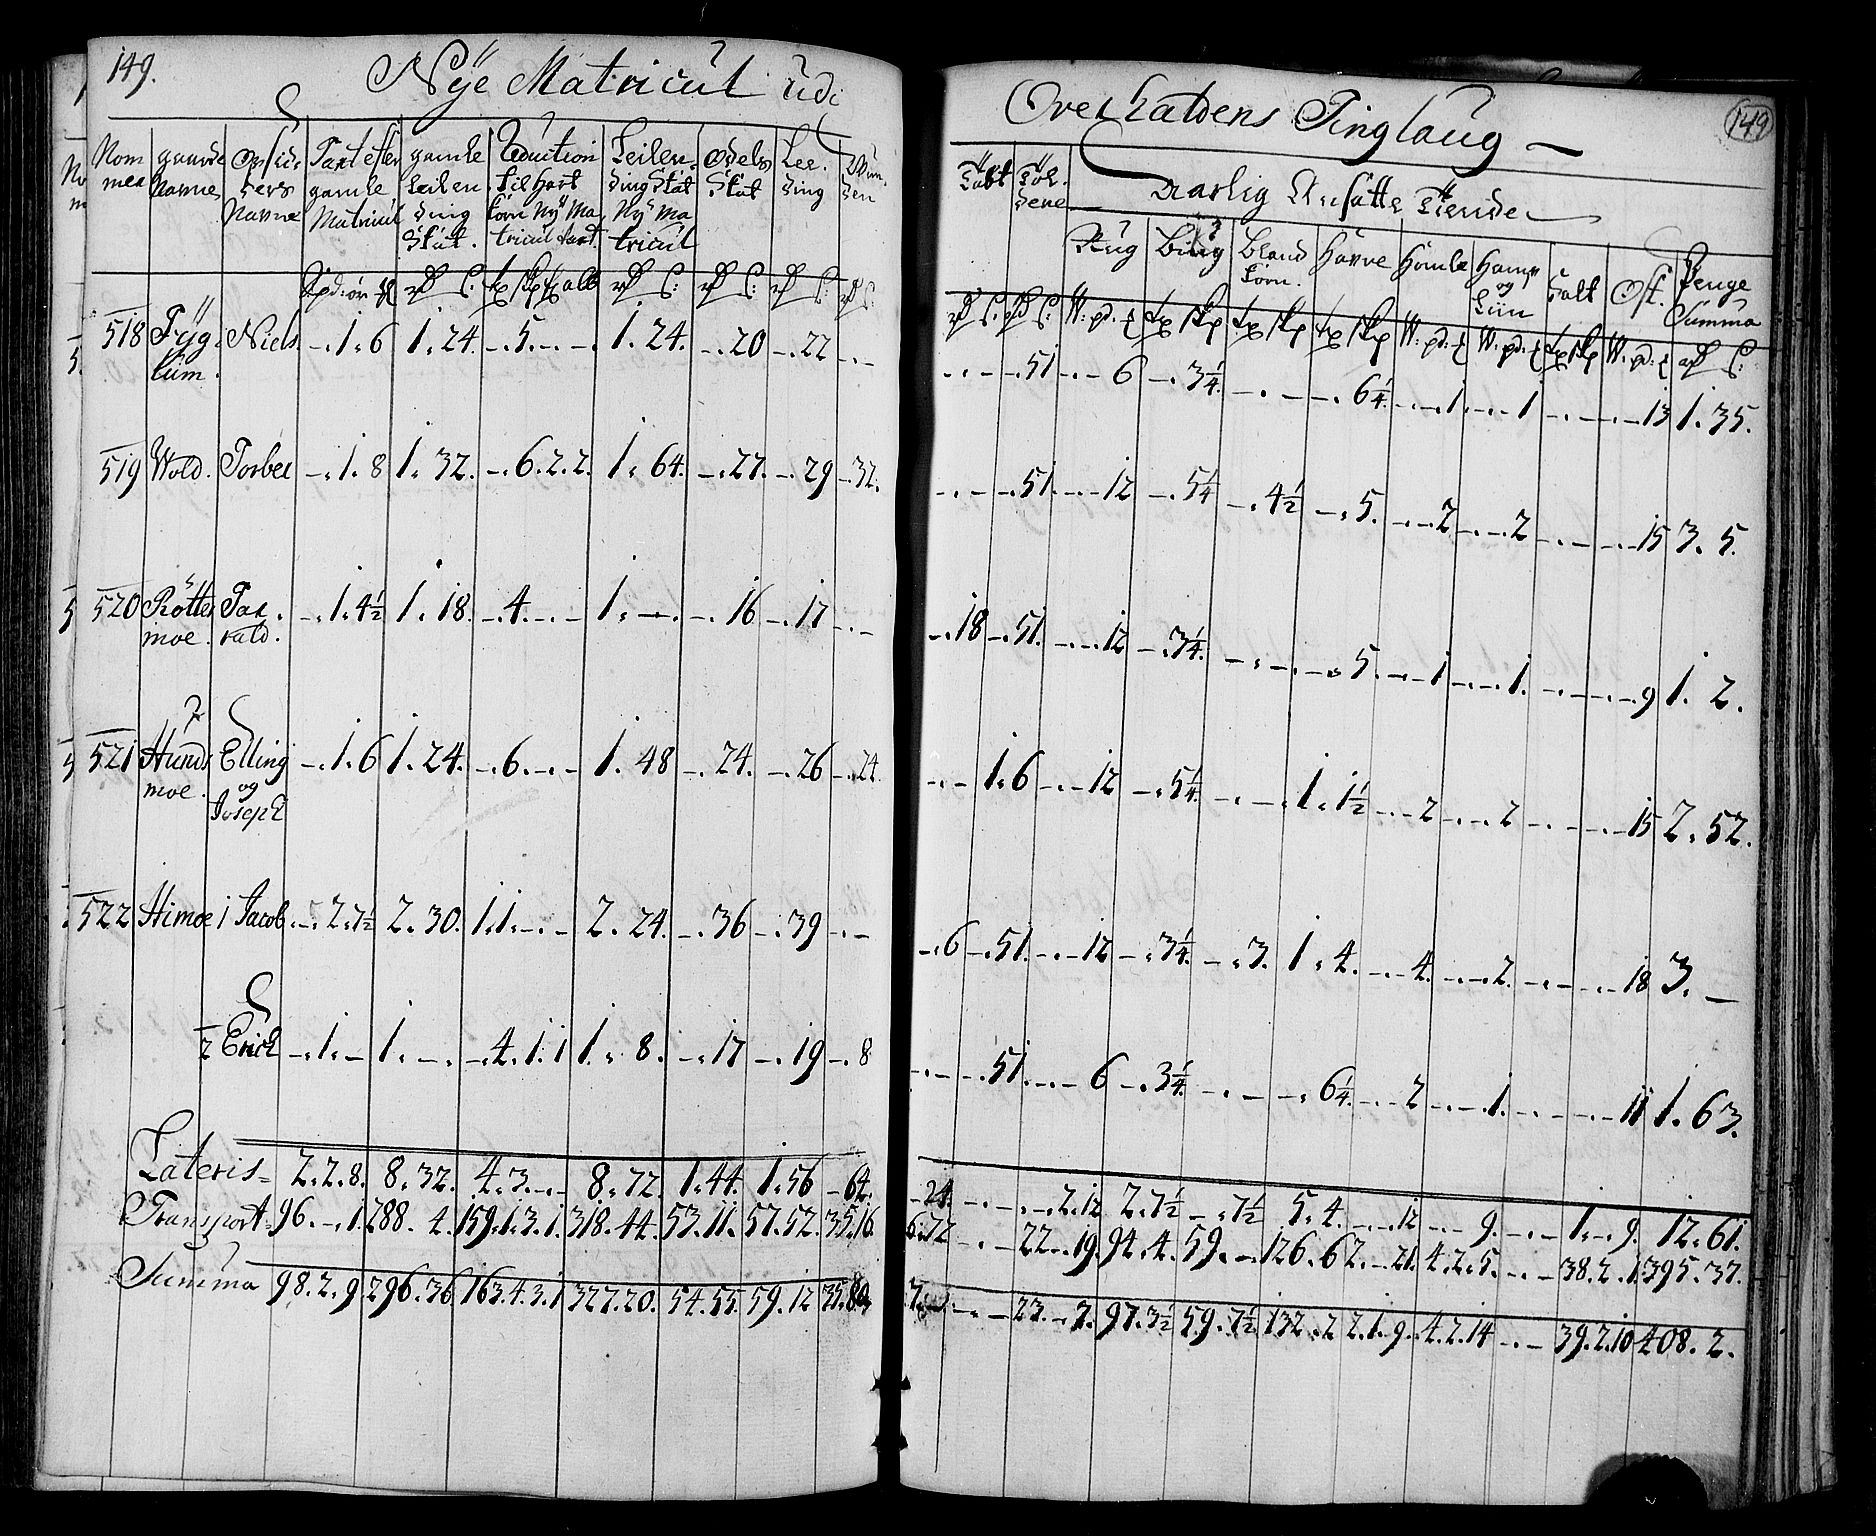 149.
Nÿe Matricul udi
Overhaldens Tinglaug
149
Nom mer
gaarde Navne
Opsidders Navne
Taxt efter gamle Matricul
gamle Leilending Skat.
Reduction til Hart korn Nÿ Matricul taxt.
Leilending Skat Nÿ Matricul
Odels Skat
Lee ding
Aarlig Ansatte Tiende
Rug
Bÿug
Bland korn.
Havre
Homle
Hamp og Liin
Salt
Ost.
Penge Summa
518 Fÿglum. Niels. -. 1. 6 1. 24. -. 5. -. - 1. 24. -. 20 -. 22 -. -
-. - -. 51 -. - 6 -. 3¼. -. - -. 6¼. -. -. 1 -. -. 1 -. - -. -. 13 1. 35.
519 Wold. Torber -. 1. 8 1. 32. -. 6. 2. 2. 1. 64. -. 27. -. 29 -. 32.
-. - -. 51. -. -. 12 -. 5¼ -. 4½ -. 5. -. -. 2 -. -. 2 -. - -. -. 15 3. 5.
520 Rötte moe. -. 1. 4½ 1. 18. -. 4. -. - 1. -. -. 16 -. 17 -. -
-. 18 -. 51. -. -. 12 -. 3¼. -. - -. 5. -. -. 1 -. -. 1. -. - -. -. 9 1. 2.
521 Hunds moe. Elling og Joseph -. 1. 6 1. 24. -. 6. -. - 1. 48 -. 24. -. 26 -. 24.
-. - 1. 6 -. -. 12 -. 5¼. -. - 1. 1½ -. -. 2 -. -. 2 -. - -. -. 15 2. 52.
522 Himoe 1 Jacob -. 2. 7½ 2. 30. 1. 1. -. - 2. 24. -. 36 -. 39 -. -
-. 6 -. 51. -. -. 12 -. 3¼. -. 3. 1. 4. -. -. 4. -. -. 2. -. - -. -. 18 3. -
2 Erich -. 1. - 1. -. -. 4. 1. 1 1. 8. -. 17 -. 19 -. 8
-. - -. 51. -. - 6 -. 3¼. -. - -. 6¼. -. -. 2 -. -. 1. -. - -. -. 11 1. 63.
Lateris 2. 2. 8. 8. 32. 4. 3. -. - 8. 72. 1. 44. 1. 56 -. 64.
-. 24. -. - -. 2. 12 2. 7½ -. 7½ 5. 4. -. -. 12 -. -. 9. -. - 1. -. 9. 12. 61.
Transport 96. -. 1. 288. 4. 159. 1. 3. 1. 318. 44. 53. 11. 57. 52. 35. 16.
6. 72 -. - 22. -. 19. 94. 4. 59. - 126. 6 2. -. 21. 4. 2. 5. -. - 38. 2. 1. 395. 37.
Summa 98. 2. 9. 296. 36. 163. 4. 3. 1 327. 20. 54. 55. 59. 12 35. 80.
7. -. -. - 23. -. 7. 97. 3½ 59. 7½ 132. 2 2. 1. 9. 4. 2. 14 -. - 39. 2. 10 408. 2.